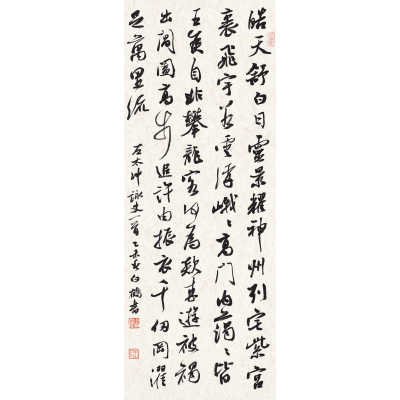 皓天舒白日靈景耀神州列宅紫宮
裏飛宇若雲浮峨〻高門內藹〻皆
王侯自非攀龍客何為欻來遊被褐
出閶闔高步追許由振衣千仞岡濯
足萬里流
左太冲詠史一首乙未白鶴書